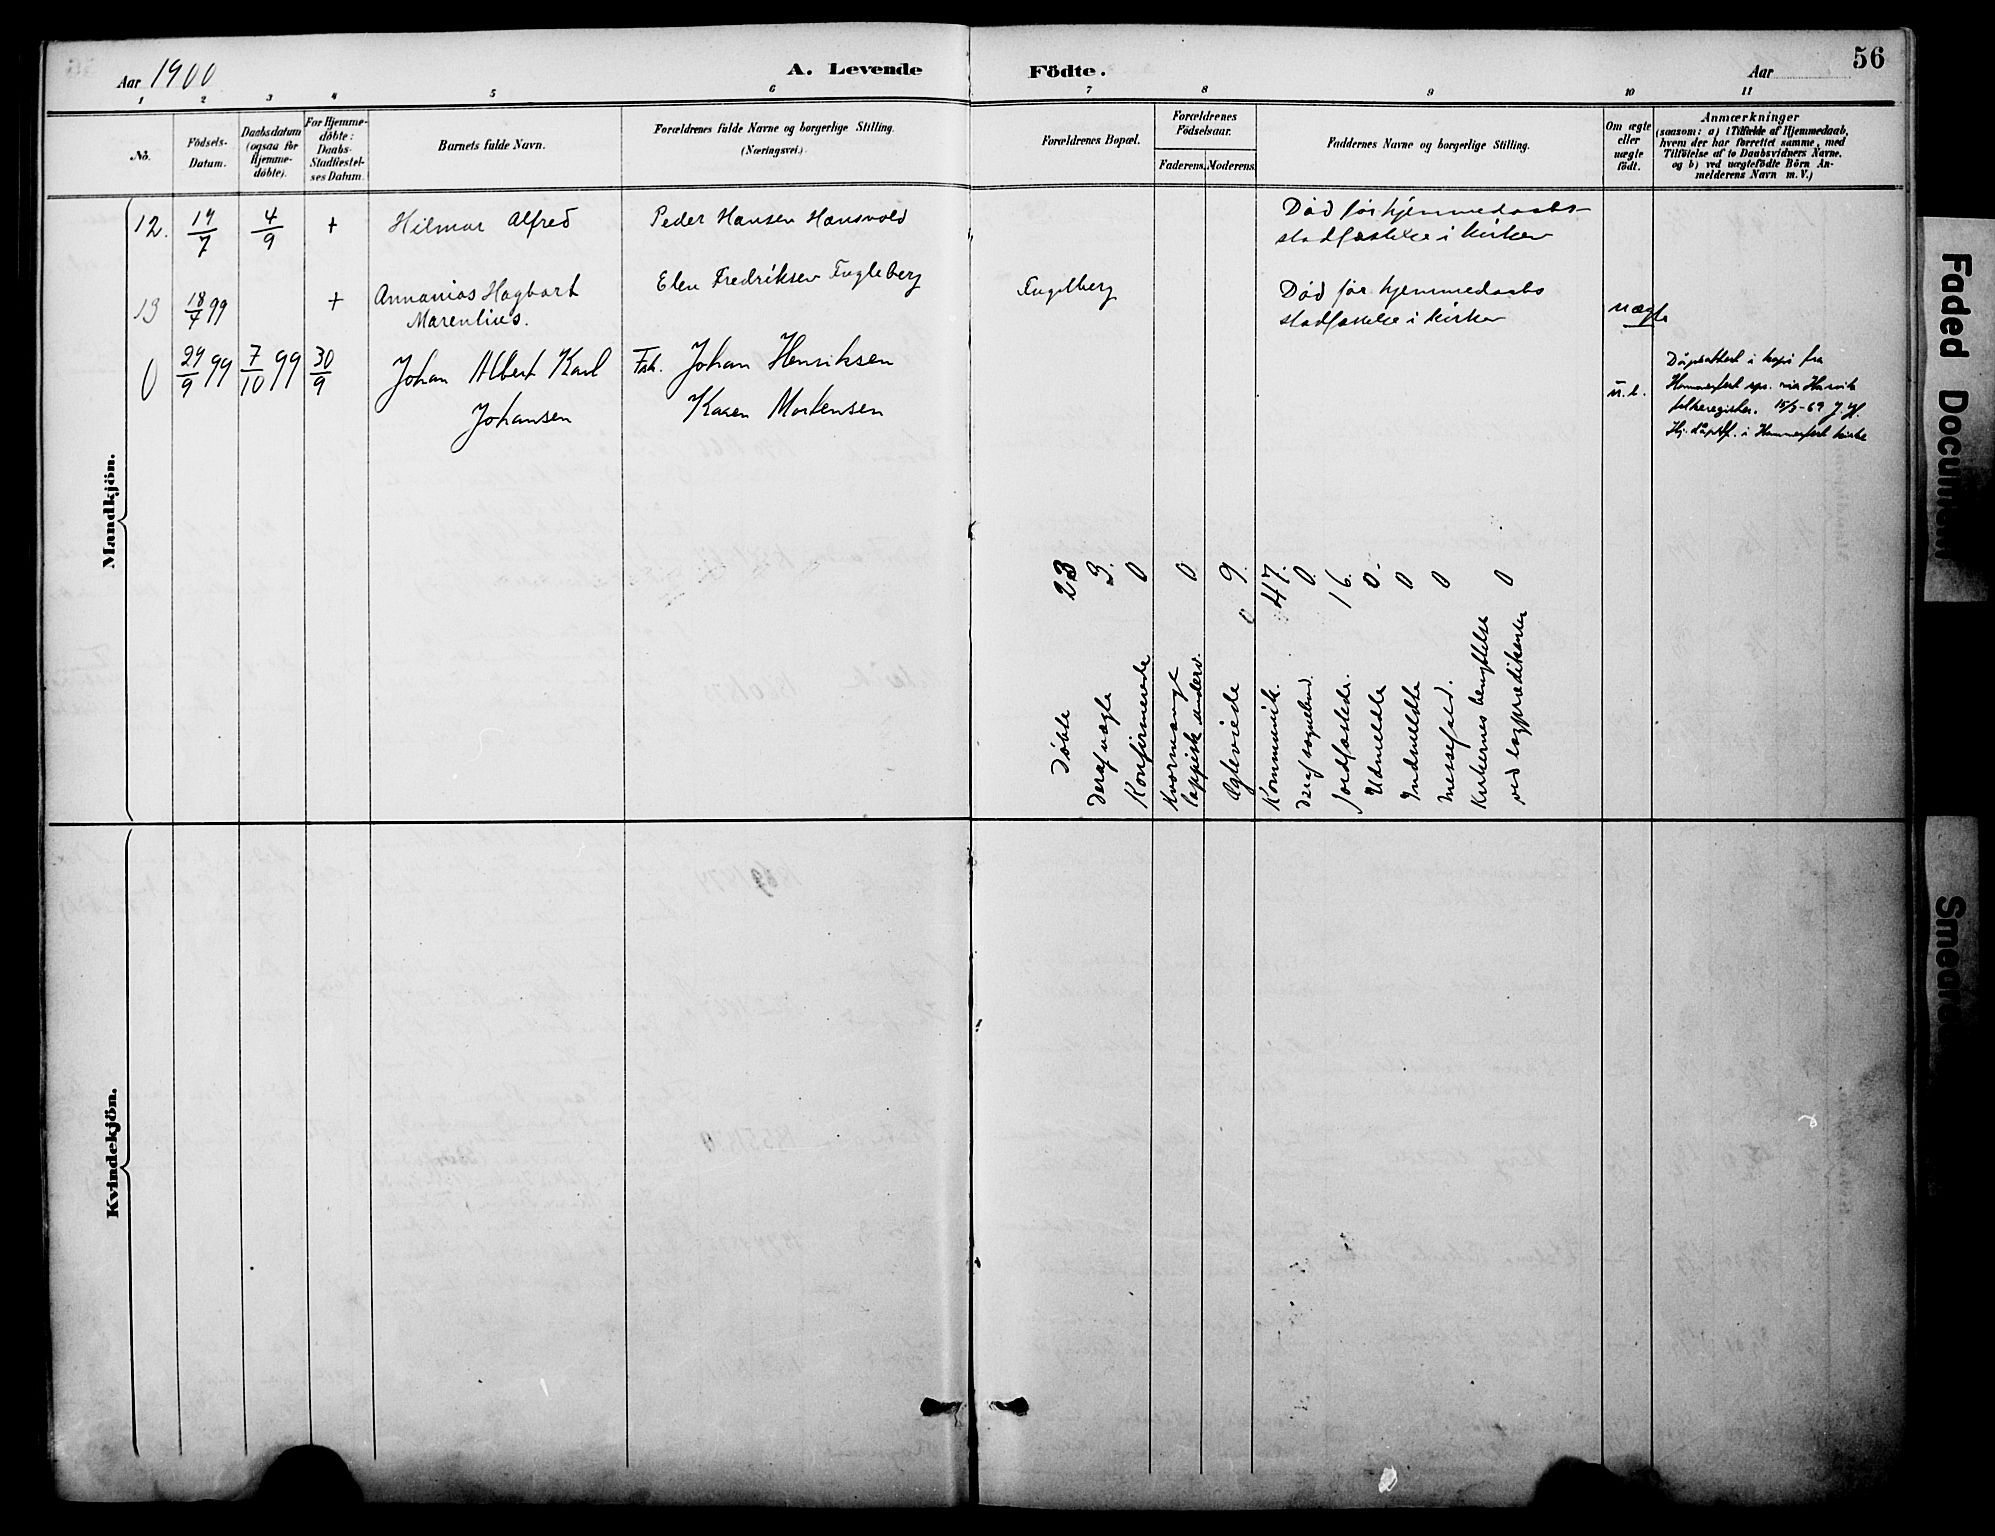 Aar 1900
A. Levende
Födte.
Aar
56
1 2 3 4 5 6 7 8 9 10 11
No.
Födsels-
Datum.
Daabsdatum
(ogsaa for
Hjemme-
döbte).
For Hjemme-
döbte:
Daabs-
Stadfæstel-
ses Datum.
Barnets fulde Navn.
Forældrenes fulde Navne og borgerlige Stilling.
(Næringsvei.)
Forældrenes Bopæl.
Forældrenes
Födselsaar.
Faderens.
Moderens.
Faddernes Navne og borgerlige Stilling.
Om ægte
eller
uægte
födt.
Anmærkninger
(saasom: a) i Tilfælde af Hjemmedaab,
hvem der har forrettet samme, med
Tilföielse af to Daabsvidners Navne,
og b) ved uægtefödte Börn An-
melderens Navn m. V.)
Mandkjön.
12. 17/7 4/9 + Hilmar Alfred Peder Hansen Hansvold Død før hjemmedaabs-
stadfæstelse i kirken
Elen Fredriksen Fugleberg
13 18/7 99 + Annanias Hagbart Fugelberg Død før hjemmedaabs
Marentius. stadfæstelse i kirken uægte
0 29/9 99 7/10 99 30/9 Johan Albert Karl Fsk. Johan Henriksen
Johansen Karen Mortensen
Dåpsattest i kopi fra
Hammerfest spr. via Hasvik
folkeregister. 15/5-69
Hj. dåp stf. i Hammerfest kirke
Døbte 23
Deraf uægte 3.
Konfirmerede 0
Hvormange
lappisk underv. 0
Egteviede 9.
0
Kommunik. 47.
Deraf sognebud. 0.
Jordfæstede. 16.
Udmeldte 0.
Indmeldte 0
Messefald. 0
Kirkernes benyttelse
ved lægpredikanter 0
Kvindekjön.
Faded Document
Smeared